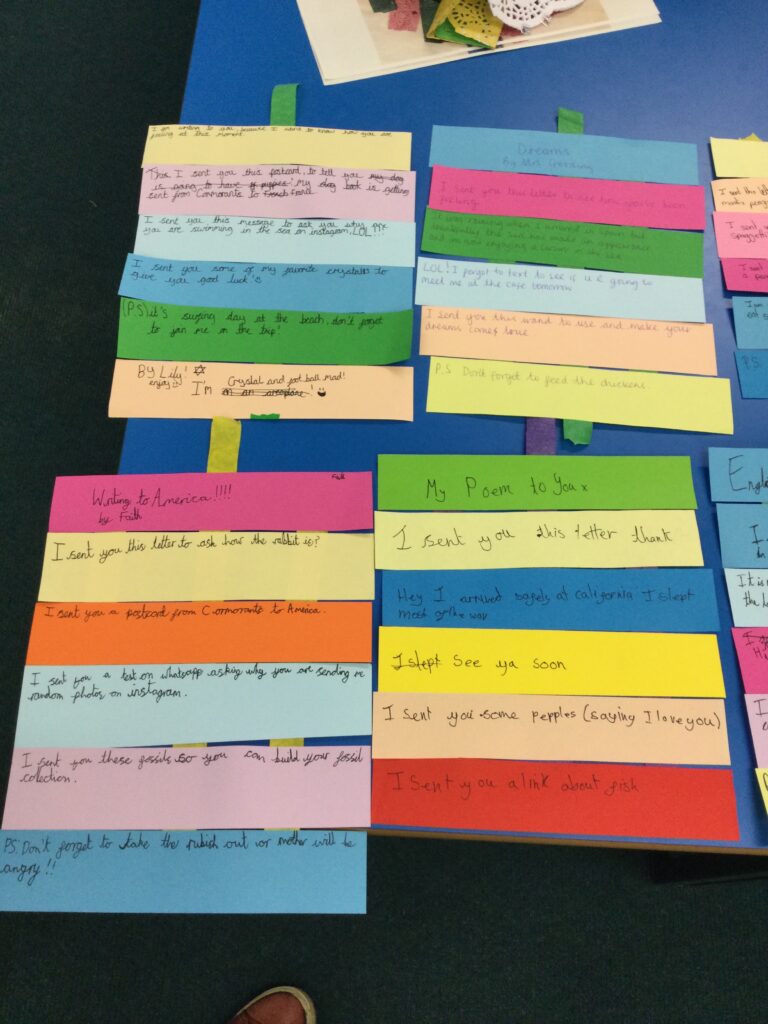 I am writing to you, because I want to know how you are
feeling at this moment.
This, I sent you this postcard, to tell you my dog
is going to have puppies! My dog book is getting
sent from Cormorants to
I sent you this message to ask you why are
you are swimming in the sea on instagram, LOL!!!
I sent you some of my favorite crystalls to
give you good luck's
(P.S) it's surfing day at the beach, don't forget
to join me on the trip!
BY Lily!
enjoy
Crystal and foot ball mad!
I'm on an aeroplane !
Dreams
By Mrs
I sent you this letter to see how you've been
feeling.
It was raining when I arrived in Spain but
thankfully the sun has made an appearance
and im now enjoying a swim in the sea
LOL! I forgot to text to see if u r going to
meet me at the cafe tomorrow
I send you this wand to use and make your
dreams come true
P.S Don't forget to feed the chickens.
Writing to America!!!!
by: Faith
Faith
I sent you this letter to ask how the rabbit is?
I sent you a postcard from Cormorants to America.
I sent you a text on whatsapp asking why you are sending me
random photos on instagram.
I sent you these fossils so you can build your fossil
collection.
PS: Don't forget to take the rubish out or mother will be
angry!!
My Poem to You x
I sent you this letter thank
Hey I arrived safely at california I slept
most of the way
I slept See ya soon
I sent you some pepples (saying I love you)
I sent you a link about fish
I sent
spaghetti
eat
P.S
I
It is
the